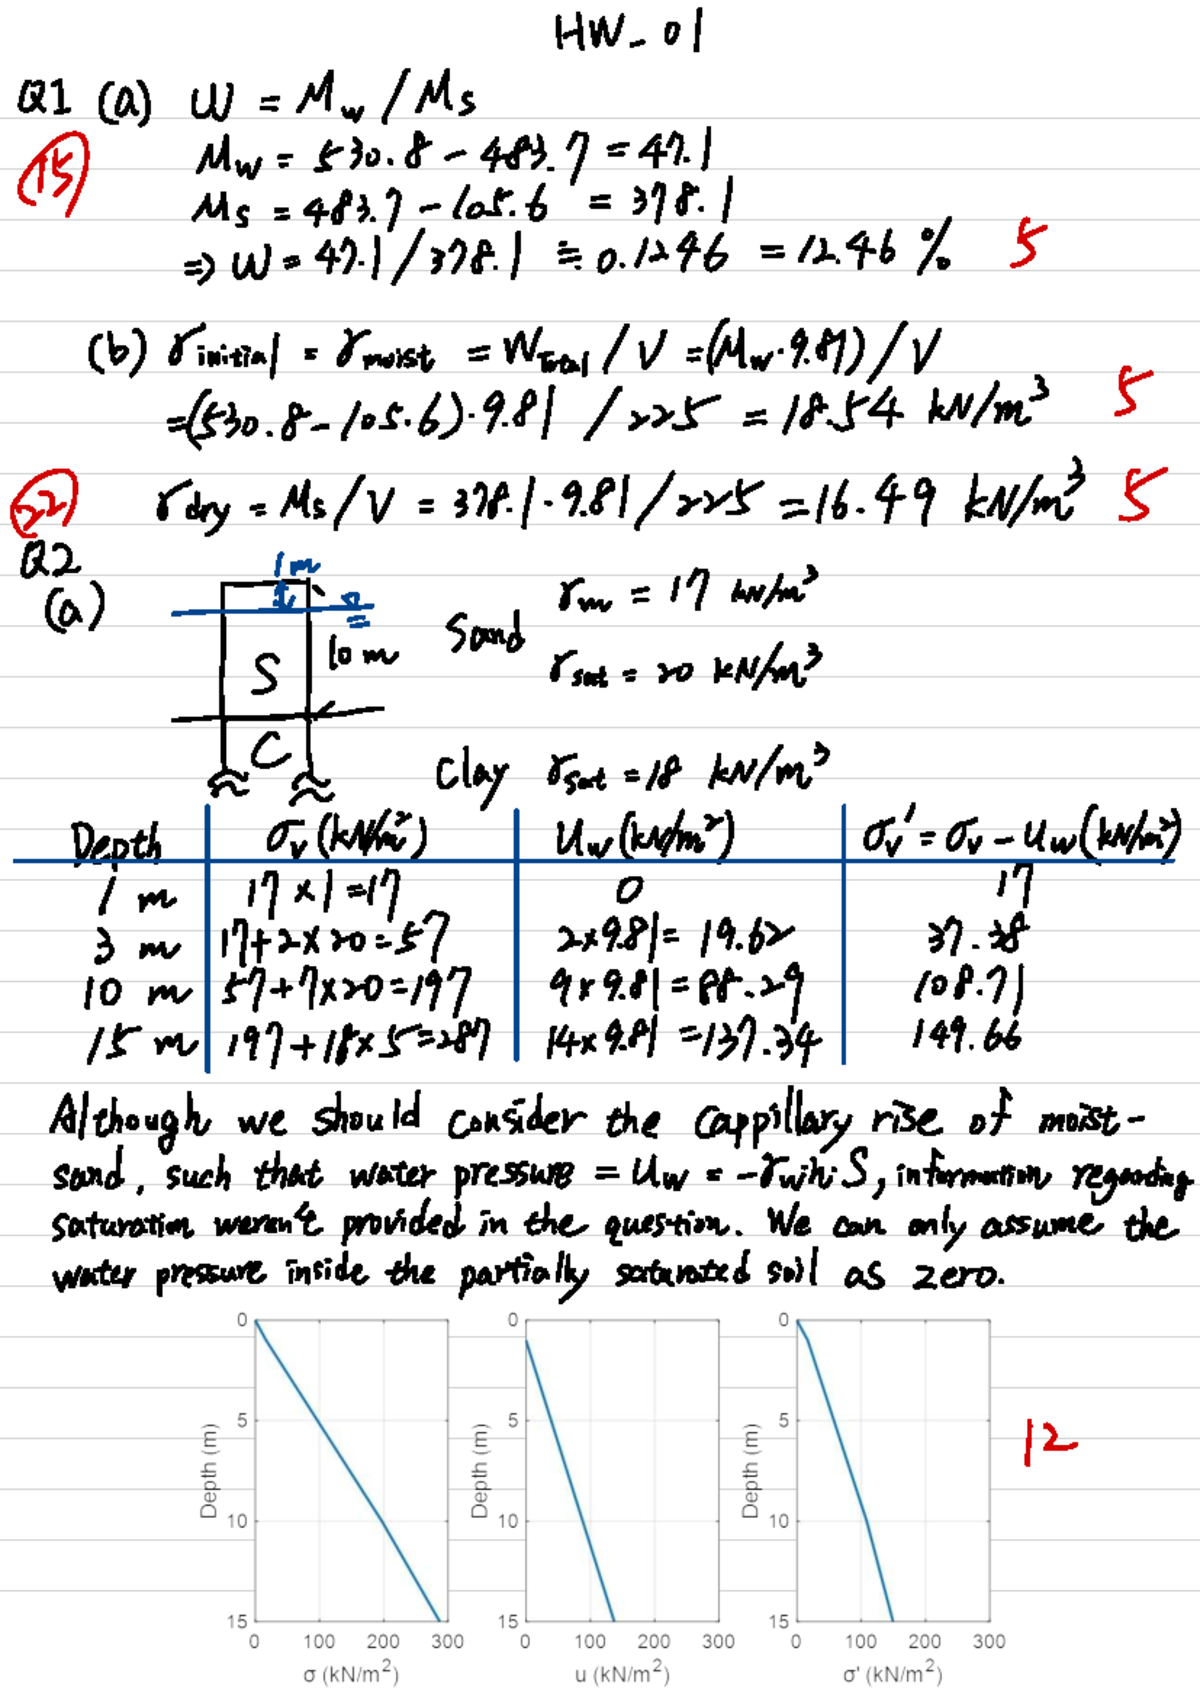 HW_01
Q1 (a) W = Mw / Ms
15
Mw = 530.8 - 483.7 = 47.1
Ms = 483.7 - 105.6 = 378.1
⇒ W = 47.1 / 378.1 ≒ 0.1246 = 12.46 % 5
(b) γinitial = γmoist = WTotal / V = (Mw · 9.81) / V
= (530.8 - 105.6) · 9.81 / 225 = 18.54 kN/m³ 5
22
γdry = Ms / V = 378.1 · 9.81 / 225 = 16.49 kN/m³ 5
Q2
(a)
1m
10 m
S
C
Sand γm = 17 kN/m³
γsat = 20 kN/m³
Clay γsat = 18 kN/m³
Depth σv (kN/m²) Uw (kN/m²) σv' = σv - Uw (kN/m²)
1 m 17 × 1 = 17 0 17
3 m 17 + 2 × 20 = 57 2×9.81 = 19.62 37.38
10 m 57 + 7 × 20 = 197 9×9.81 = 88.29 108.71
15 m 197 + 18 × 5 = 287 14×9.81 = 137.34 149.66
Although we should consider the cappillary rise of moist-
sand, such that water pressure = Uw = -γw h S, information regarding
saturation weren't provided in the question. We can only assume the
water pressure inside the partially saturated soil as zero.
0
5
10
15
Depth (m)
0 100 200 300
σ (kN/m²)
0
5
10
15
Depth (m)
0 100 200 300
u (kN/m²)
0
5
10
15
Depth (m)
0 100 200 300
σ' (kN/m²)
12